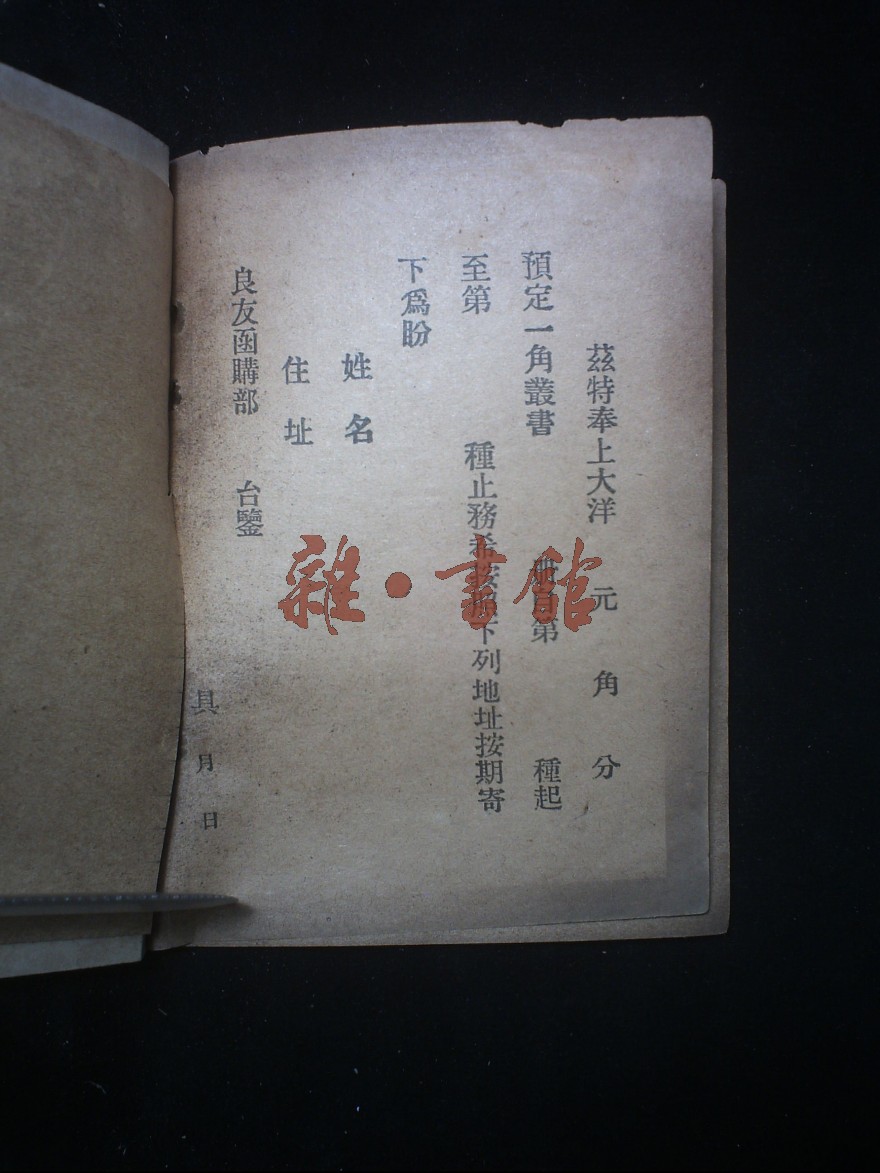 茲特奉上大洋 元 角 分
預定一角叢書 冊自第 種起
至第 種止務希按照下列地址按期寄
下爲盼
姓名
住址
良友函購部 台鑒
具 月 日
雜·書館